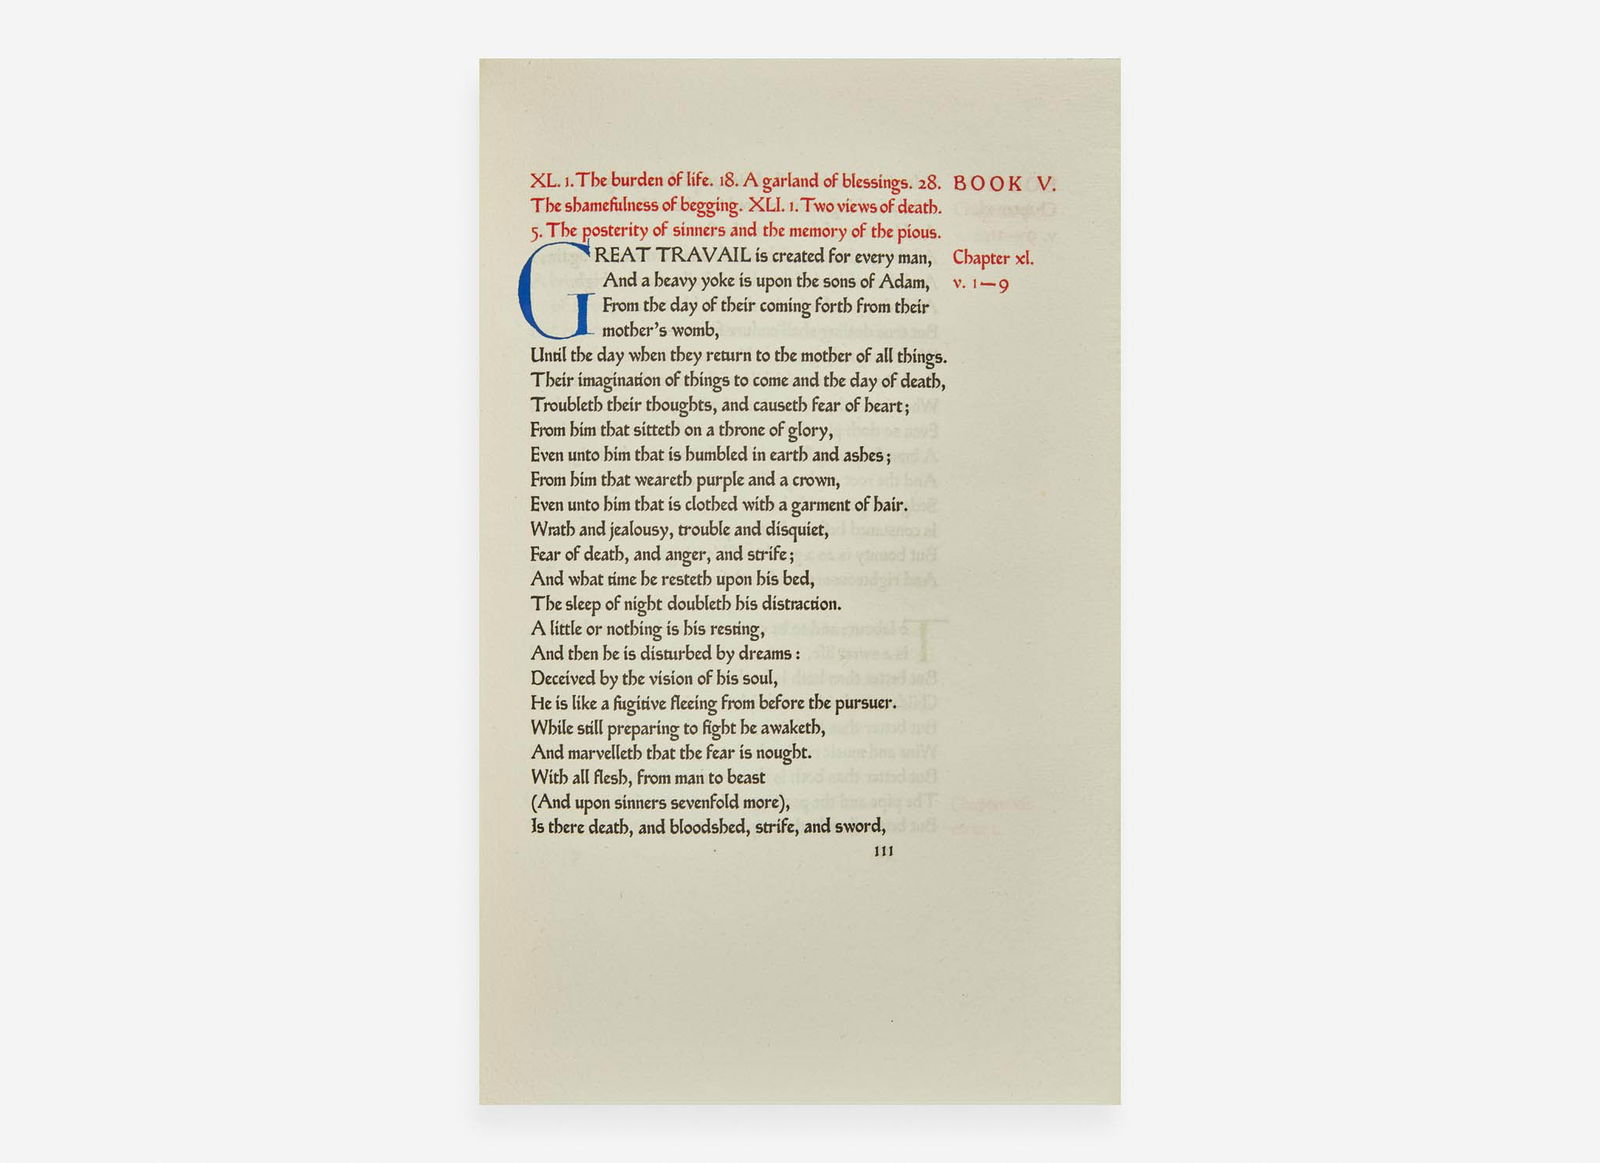 XL. 1. The burden of life. 18. A garland of blessings. 28.
The shamefulness of begging. XLI. 1. Two views of death.
5. The posterity of sinners and the memory of the pious.
BOOK V.
GREAT TRAVAIL is created for every man,
And a heavy yoke is upon the sons of Adam,
From the day of their coming forth from their
mother's womb,
Chapter xl.
v. 1—9
Until the day when they return to the mother of all things.
Their imagination of things to come and the day of death,
Troubleth their thoughts, and causeth fear of heart;
From him that sitteth on a throne of glory,
Even unto him that is humbled in earth and ashes;
From him that weareth purple and a crown,
Even unto him that is clothed with a garment of hair.
Wrath and jealousy, trouble and disquiet,
Fear of death, and anger, and strife;
And what time he resteth upon his bed,
The sleep of night doubleth his distraction.
A little or nothing is his resting,
And then he is disturbed by dreams:
Deceived by the vision of his soul,
He is like a fugitive fleeing from before the pursuer.
While still preparing to fight he awaketh,
And marvelleth that the fear is nought.
With all flesh, from man to beast
(And upon sinners sevenfold more),
Is there death, and bloodshed, strife, and sword,
111